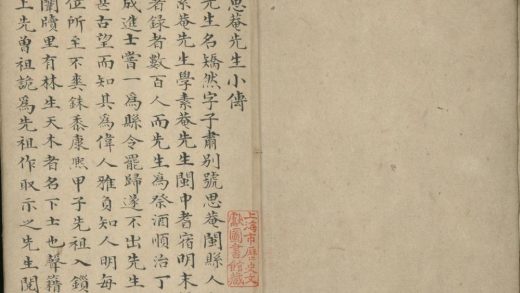 思菴先生小傳
先生名矯然字子肅別號思菴閩縣人
素菴先生學素菴先生閩中耆宿明末
者錄者數百人而先生為祭酒順治丁
成進士嘗一為縣令罷歸遂不出先生
甚古望而知其為偉人雅負知人明每
位所至不爽銖黍康熙甲子先祖入鎖
闈牘里有林生天木者名下士也聲籍
上先曾祖詭為先祖作取示之先生閱
上海市歷史文
獻圖書館藏